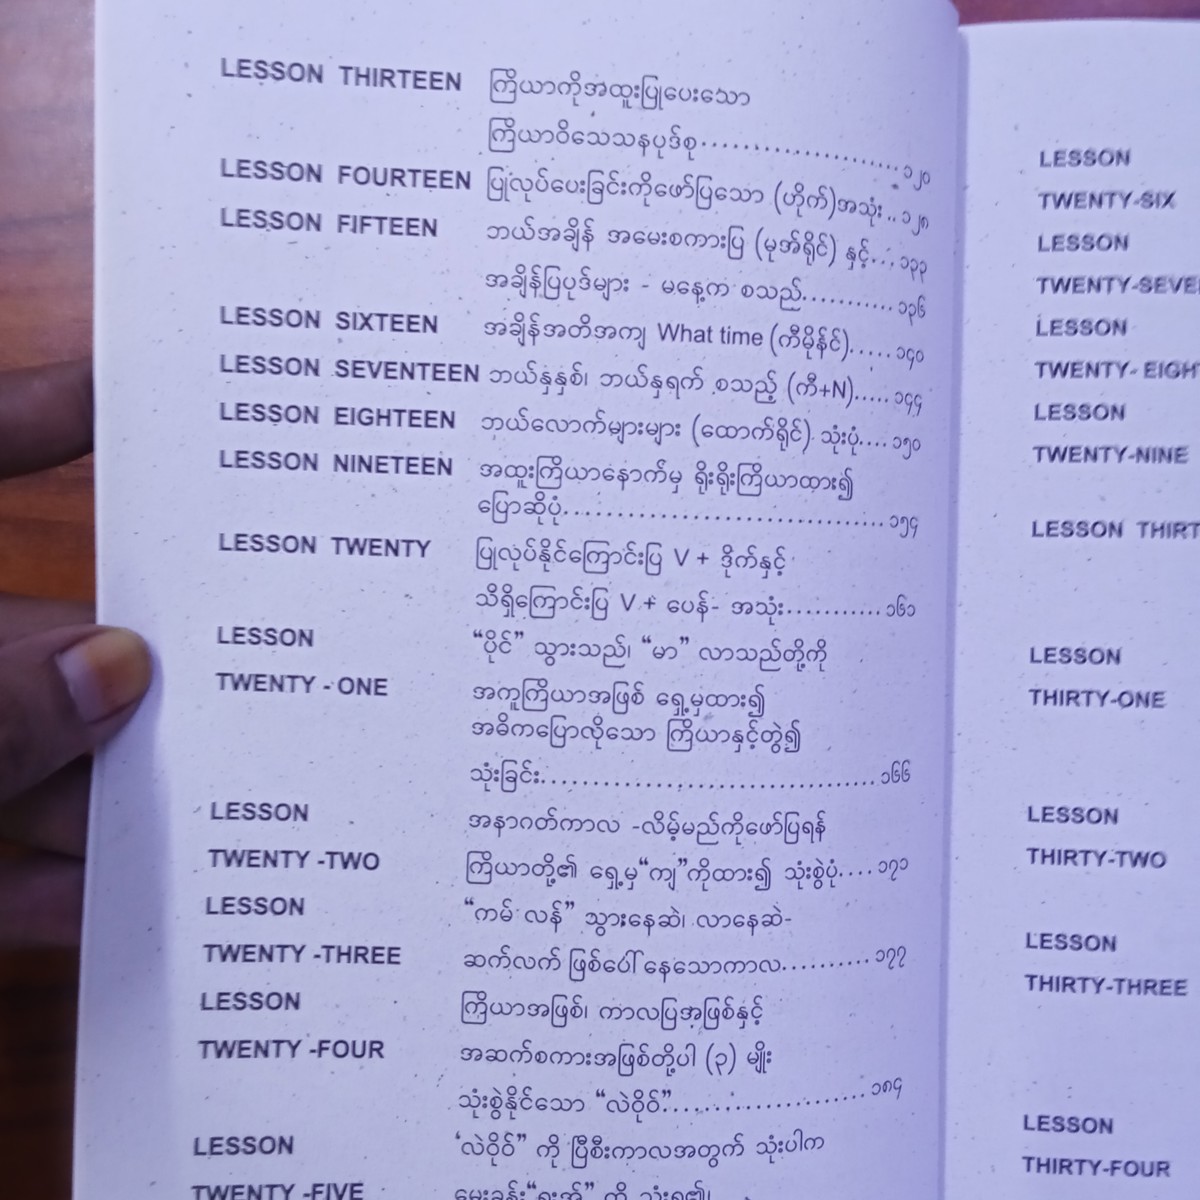 LESSON THIRTEEN ကြိယာကိုအထူးပြုပေးသော
ကြိယာဝိသေသနပုဒ်စု.....................၁၂၀
LESSON FOURTEEN ပြုလုပ်ပေးခြင်းကိုဖော်ပြသော (ဟိုက်)အသုံး..၁၂၈
LESSON FIFTEEN ဘယ်အချိန် အမေးစကားပြ (မုအ်ရိုင်) နှင့်....၁၃၃
အချိန်ပြပုဒ်များ - မနေ့က စသည်...........၁၃၆
LESSON SIXTEEN အချိန်အတိအကျ What time (ကီမိုန်င်).....၁၄၀
LESSON SEVENTEEN ဘယ်နှနှစ်၊ ဘယ်နှရက် စသည့် (ကီ+N).....၁၄၄
LESSON EIGHTEEN ဘယ်လောက်များများ (ထောက်ရိုင်) သုံးပုံ....၁၅၀
LESSON NINETEEN အထူးကြိယာနောက်မှ ရိုးရိုးကြိယာထား၍
ပြောဆိုပုံ.................................၁၅၄
LESSON TWENTY ပြုလုပ်နိုင်ကြောင်းပြ V + ဒိုက်နှင့်
သိရှိကြောင်းပြ V + ပေန်- အသုံး...........၁၆၁
LESSON “ပိုင်” သွားသည်၊ “မာ” လာသည်တို့ကို
TWENTY - ONE အကူကြိယာအဖြစ် ရှေ့မှထား၍
အဓိကပြောလိုသော ကြိယာနှင့်တွဲ၍
သုံးခြင်း..................................၁၆၆
LESSON အနာဂတ်ကာလ -လိမ့်မည်ကိုဖော်ပြရန်
TWENTY -TWO ကြိယာတို့၏ ရှေ့မှ“ကျ”ကိုထား၍ သုံးစွဲပုံ....၁၇၁
LESSON “ကမ် လန်” သွားနေဆဲ၊ လာနေဆဲ-
TWENTY -THREE ဆက်လက် ဖြစ်ပေါ်နေသောကာလ..........၁၇၇
LESSON ကြိယာအဖြစ်၊ ကာလပြအဖြစ်နှင့်
TWENTY -FOUR အဆက်စကားအဖြစ်တို့ပါ (၃) မျိုး
သုံးစွဲနိုင်သော “လဲဝိုဝ်”....................၁၈၄
LESSON ‘လဲဝိုဝ်” ကို ပြီးစီးကာလအတွက် သုံးပါက
TWENTY -FIVE
LESSON
TWENTY-SIX
LESSON
LESSON
LESSON
TWENTY-NINE
LESSON
LESSON
THIRTY-ONE
LESSON
THIRTY-TWO
LESSON
THIRTY-THREE
LESSON
THIRTY-FOUR